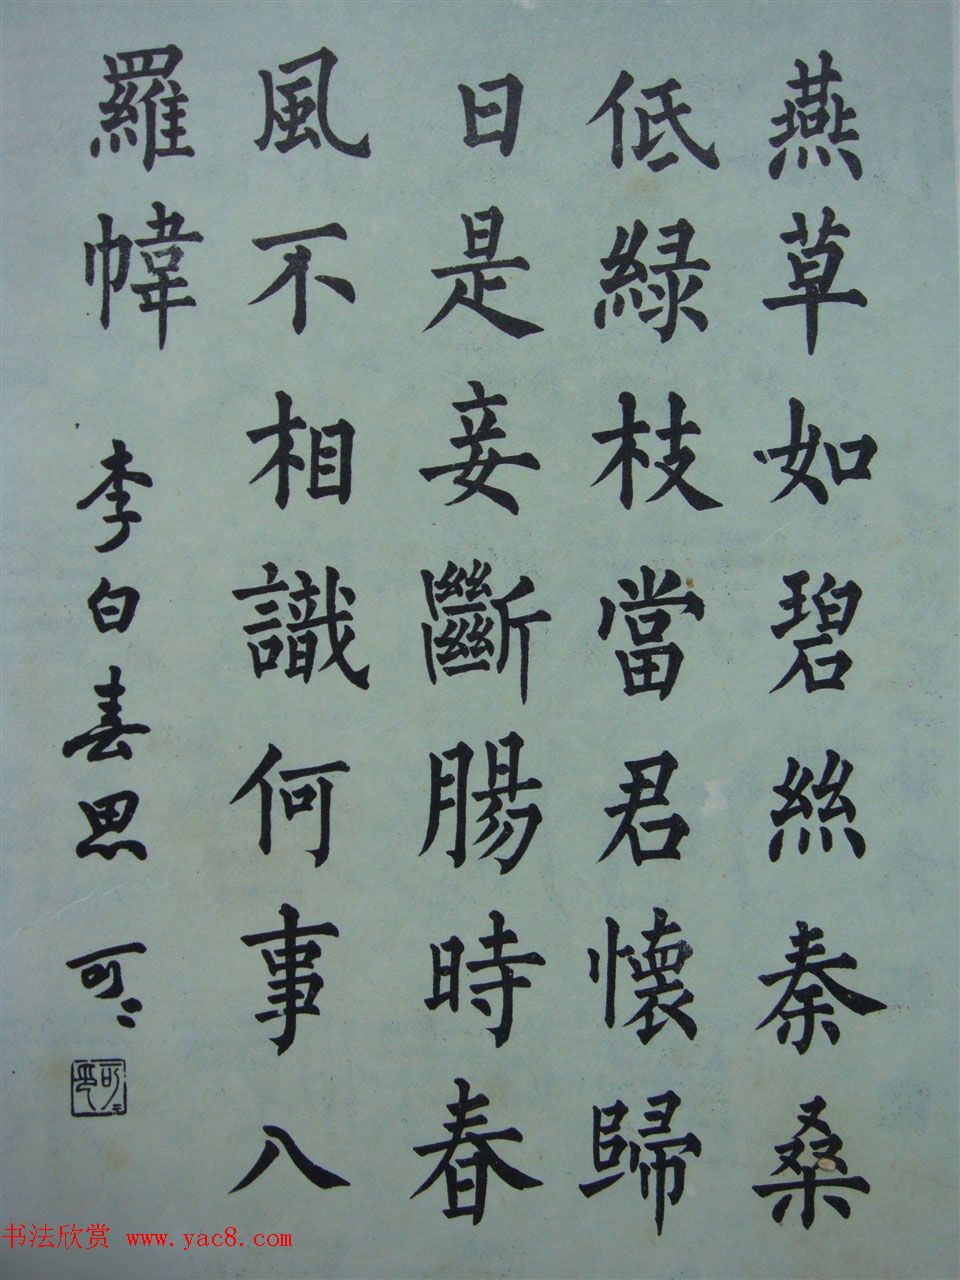 燕草如碧絲秦桑
低綠枝當君懷歸
日是妾斷腸時春
風不相識何事八
羅幃
李白春思 可〻
書法欣赏 www.yac8.com